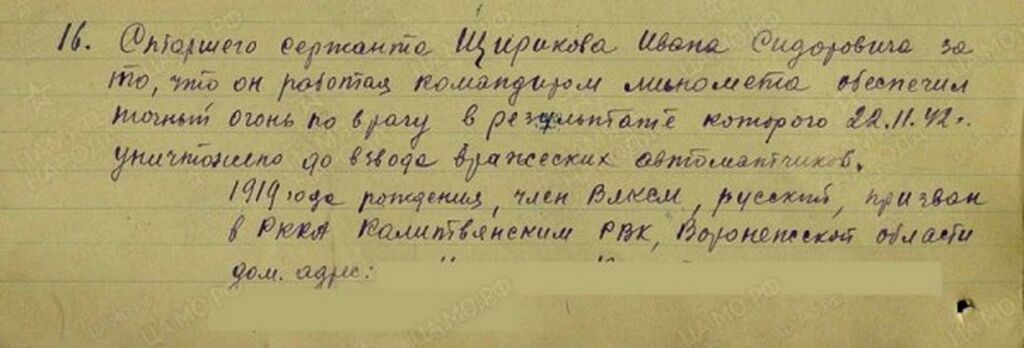 16. Старшего сержанта Щирикова Ивана Сидоровича за
то, что он работая командиром миномета обеспечил
точный огонь по врагу в результате которого 22.11.42г.
уничтожено до взвода вражеских автоматчиков.
1919 года рождения, член ВЛКСМ, русский, призван
в РККА Калитвянским РВК, Воронежской области
дом. адрес: